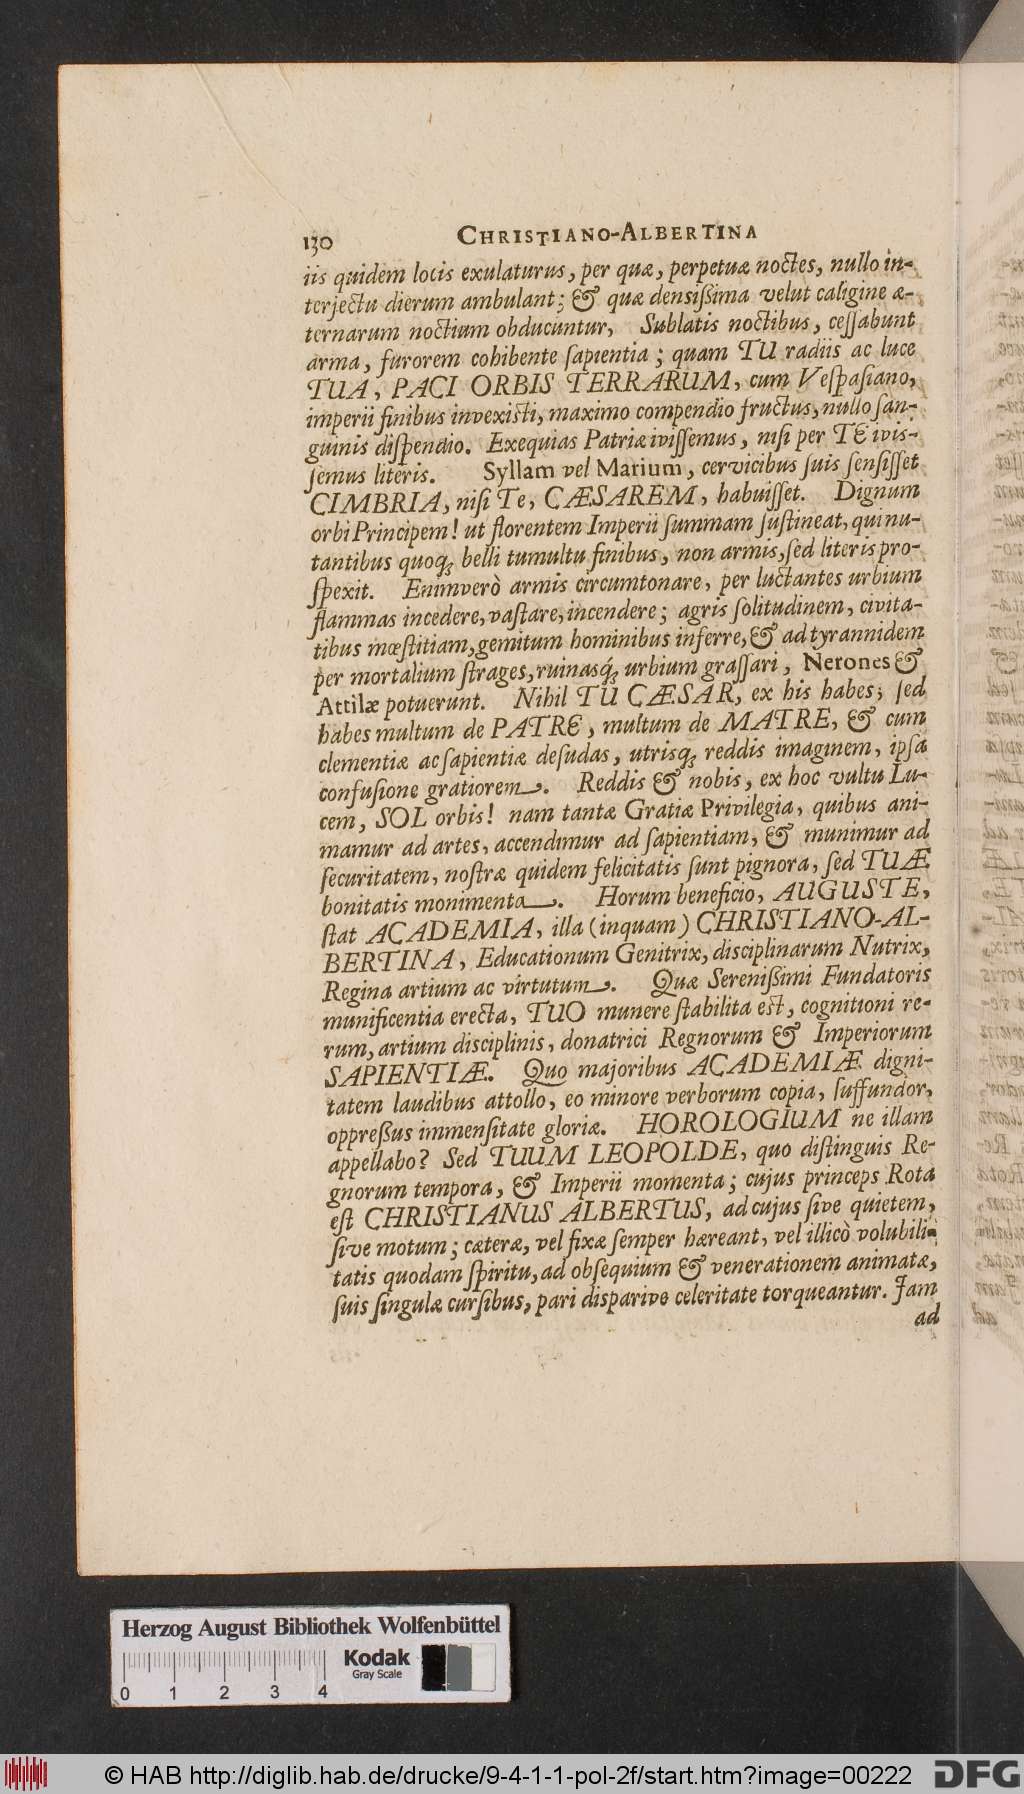 130 CHRISTIANO-ALBERTINA
iis quidem locis exulaturus, per quæ, perpetuæ noctes, nullo in-
terjectu dierum ambulant; & quæ densißima velut caligine æ-
ternarum noctium obducuntur, Sublatis noctibus, ceſſabunt
arma, furorem cohibente ſapientia; quam TU radiis ac luce
TUA, PACI ORBIS TERRARUM, cum Veſpaſiano,
imperii finibus invexisti, maximo compendio fructus, nullo ſan-
guinis diſpendio. Exequias Patriæ iviſſemus, niſi per TE iviſ-
ſemus literis. Syllam vel Marium, cervicibus ſuis ſenſiſſet
CIMBRIA, niſi Te, CÆSAREM, habuiſſet. Dignum
orbi Principem! ut florentem Imperii ſummam ſuſtineat, qui nu-
tantibus quoq; belli tumultu finibus, non armis, ſed literis pro-
ſpexit. Enimverò armis circumtonare, per luctantes urbium
flammas incedere, vaſtare, incendere; agris ſolitudinem, civita-
tibus mœſtitiam, gemitum hominibus inferre, & ad tyrannidem
per mortalium ſtrages, ruinasq́; urbium graſſari, Nerones &
Attilæ potuerunt. Nihil TU CÆSAR, ex his habes; ſed
habes multum de PATRE, multum de MATRE, & cum
clementiæ ac ſapientiæ deſudas, utrisq; reddis imaginem, ipſa
confuſione gratiorem. Reddis & nobis, ex hoc vultu Lu-
cem, SOL orbis! nam tantæ Gratiæ Privilegia, quibus ani-
mamur ad artes, accendimur ad ſapientiam, & munimur ad
ſecuritatem, noſtræ quidem felicitatis ſunt pignora, ſed TUÆ
bonitatis monimenta. Horum beneficio, AUGUSTE,
ſtat ACADEMIA, illa (inquam) CHRISTIANO-AL-
BERTINA, Educationum Genitrix, disciplinarum Nutrix,
Regina artium ac virtutum. Quæ Serenißimi Fundatoris
munificentia erecta, TUO munere ſtabilita est, cognitioni re-
rum, artium disciplinis, donatrici Regnorum & Imperiorum
SAPIENTIÆ. Quo majoribus ACADEMIÆ digni-
tatem laudibus attollo, eo minore verborum copia, ſuffundor,
oppreßus immenſitate gloriæ. HOROLOGIUM ne illam
appellabo? Sed TUUM LEOPOLDE, quo diſtinguis Re-
gnorum tempora, & Imperii momenta; cujus princeps Rota
eſt CHRISTIANUS ALBERTUS, ad cujus ſive quietem,
ſive motum; cæteræ, vel fixæ ſemper hæreant, vel illicò volubili-
tatis quodam ſpiritu, ad obſequium & venerationem animatæ,
ſuis ſingulæ curſibus, pari disparive celeritate torqueantur. Jam
ad
Herzog August Bibliothek Wolfenbüttel
Kodak
Gray Scale
0 1 2 3 4
© HAB http://diglib.hab.de/drucke/9-4-1-1-pol-2f/start.htm?image=00222
DFG